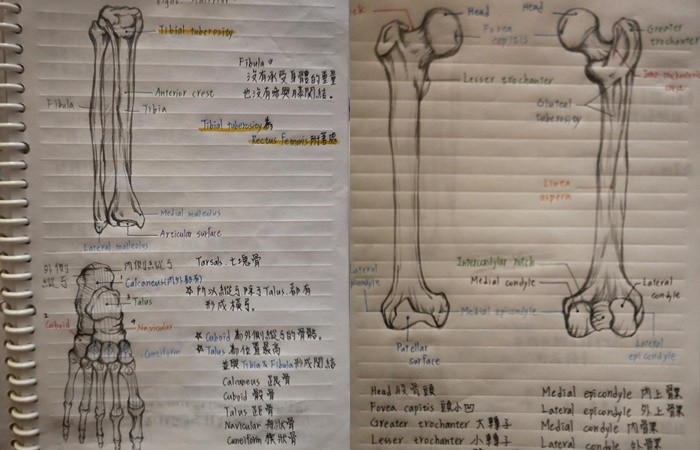 Tibial tuberosity
Fibula
沒有承受身體的重量
也沒有參與膝關結。
Anterior crest
Fibula
Tibia
Tibial tuberosity為
Rectus femoris附著處
Medial malleolus
Articular surface
Lateral malleolus
外側
縱弓
內側縱弓
Tarsals 七塊骨
Calcaneus(內外都有)
☆所以縱弓除了Talus 都有
形成橫弓。
Talus
Cuboid
Navicular
☆Cuboid 為外側縱弓的骨骼。
☆Talus 為位置最高
Cuneiform
並與Tibia & Fibula形成關結
Calcaneus 跟骨
Cuboid 骰骨
Talus 距骨
Navicular 舟狀骨
Cuneiform 楔狀骨
Head
Head
Fovea
capitis
Greater
trochanter
Lesser trochanter
Gluteal
tuberosity
Linea
aspera
Intercondylar notch
Medial condyle
Lateral
condyle
Lateral
epicondyle
Medial epicondyle
Patellar
surface
Lateral
epicondyle
Head 股骨頭
Fovea capitis 頭小凹
Greater trochanter 大轉子
Lesser trochanter 小轉子
Medial epicondyle 內上髁
Lateral epicondyle 外上髁
Medial condyle 內髁
Lateral condyle 外髁